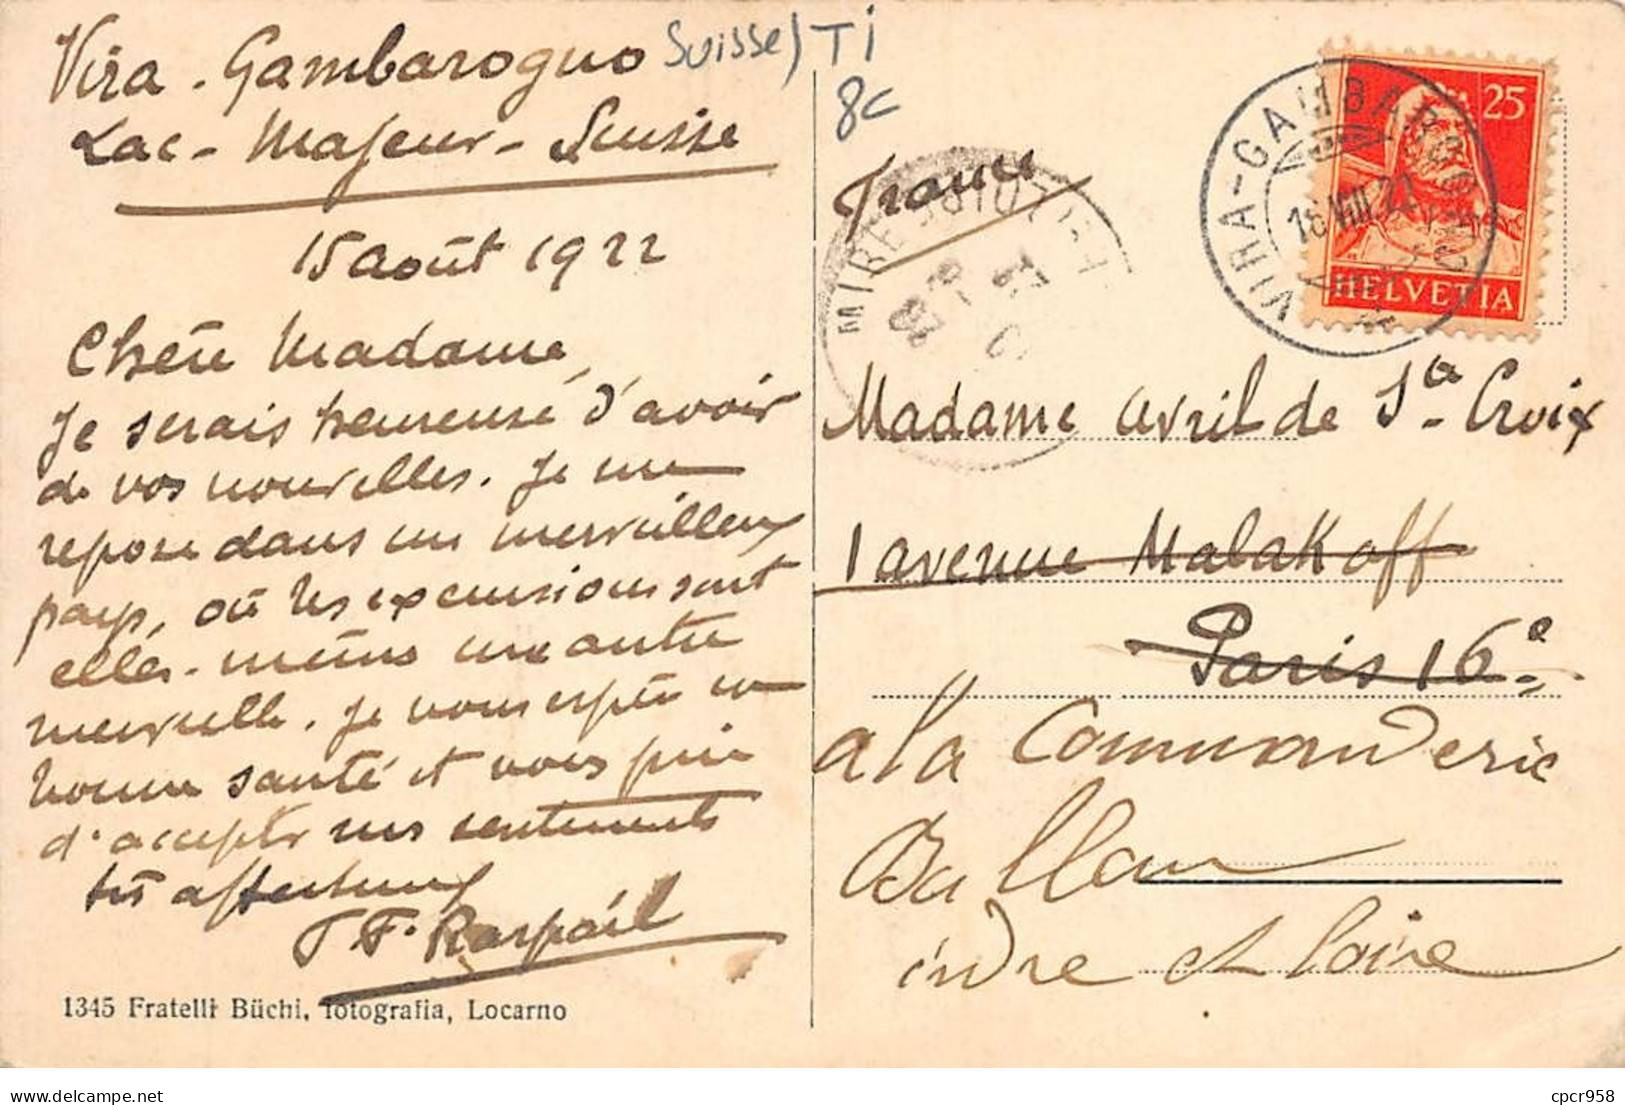 Vira - Gambarogno
Lac - Majeur - Suisse
15 août 1922
Chère Madame,
Je serais heureuse d'avoir
de vos nouvelles. Je me
repose dans un merveilleux
pays, où les excursions sont
elles-mêmes une autre
merveille. Je vous espère en
bonne santé et vous prie
d'accepter mes sentiments
très affectueux
J. F. Raspail
1345 Fratelli Büchi, fotografia, Locarno
Suisse / TI
8c
France
VIRA-GAMBAROGNO
18 VIII 22
25
HELVETIA
Madame Avril de Ste Croix
1 avenue Malakoff
Paris 16e
a la Commanderie
Ballan
indre et loire
cpcr958